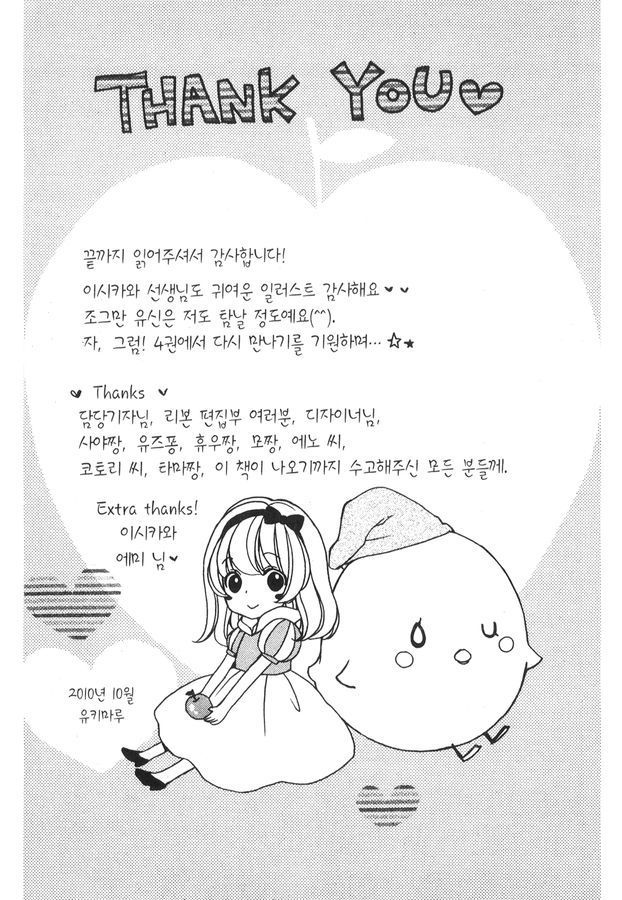 THANK YOU♥
끝까지 읽어주셔서 감사합니다!
이시카와 선생님도 귀여운 일러스트 감사해요♥♥
조그만 유신은 저도 탐날 정도예요(^^).
자, 그럼! 4권에서 다시 만나기를 기원하며…☆★
♥ Thanks ♥
담당기자님, 리본 편집부 여러분, 디자이너님,
사야짱, 유즈퐁, 휴우짱, 모짱, 에노 씨,
코토리 씨, 타마짱, 이 책이 나오기까지 수고해주신 모든 분들께.
Extra thanks!
이시카와
에미 님♥
2010년 10월
유키마루